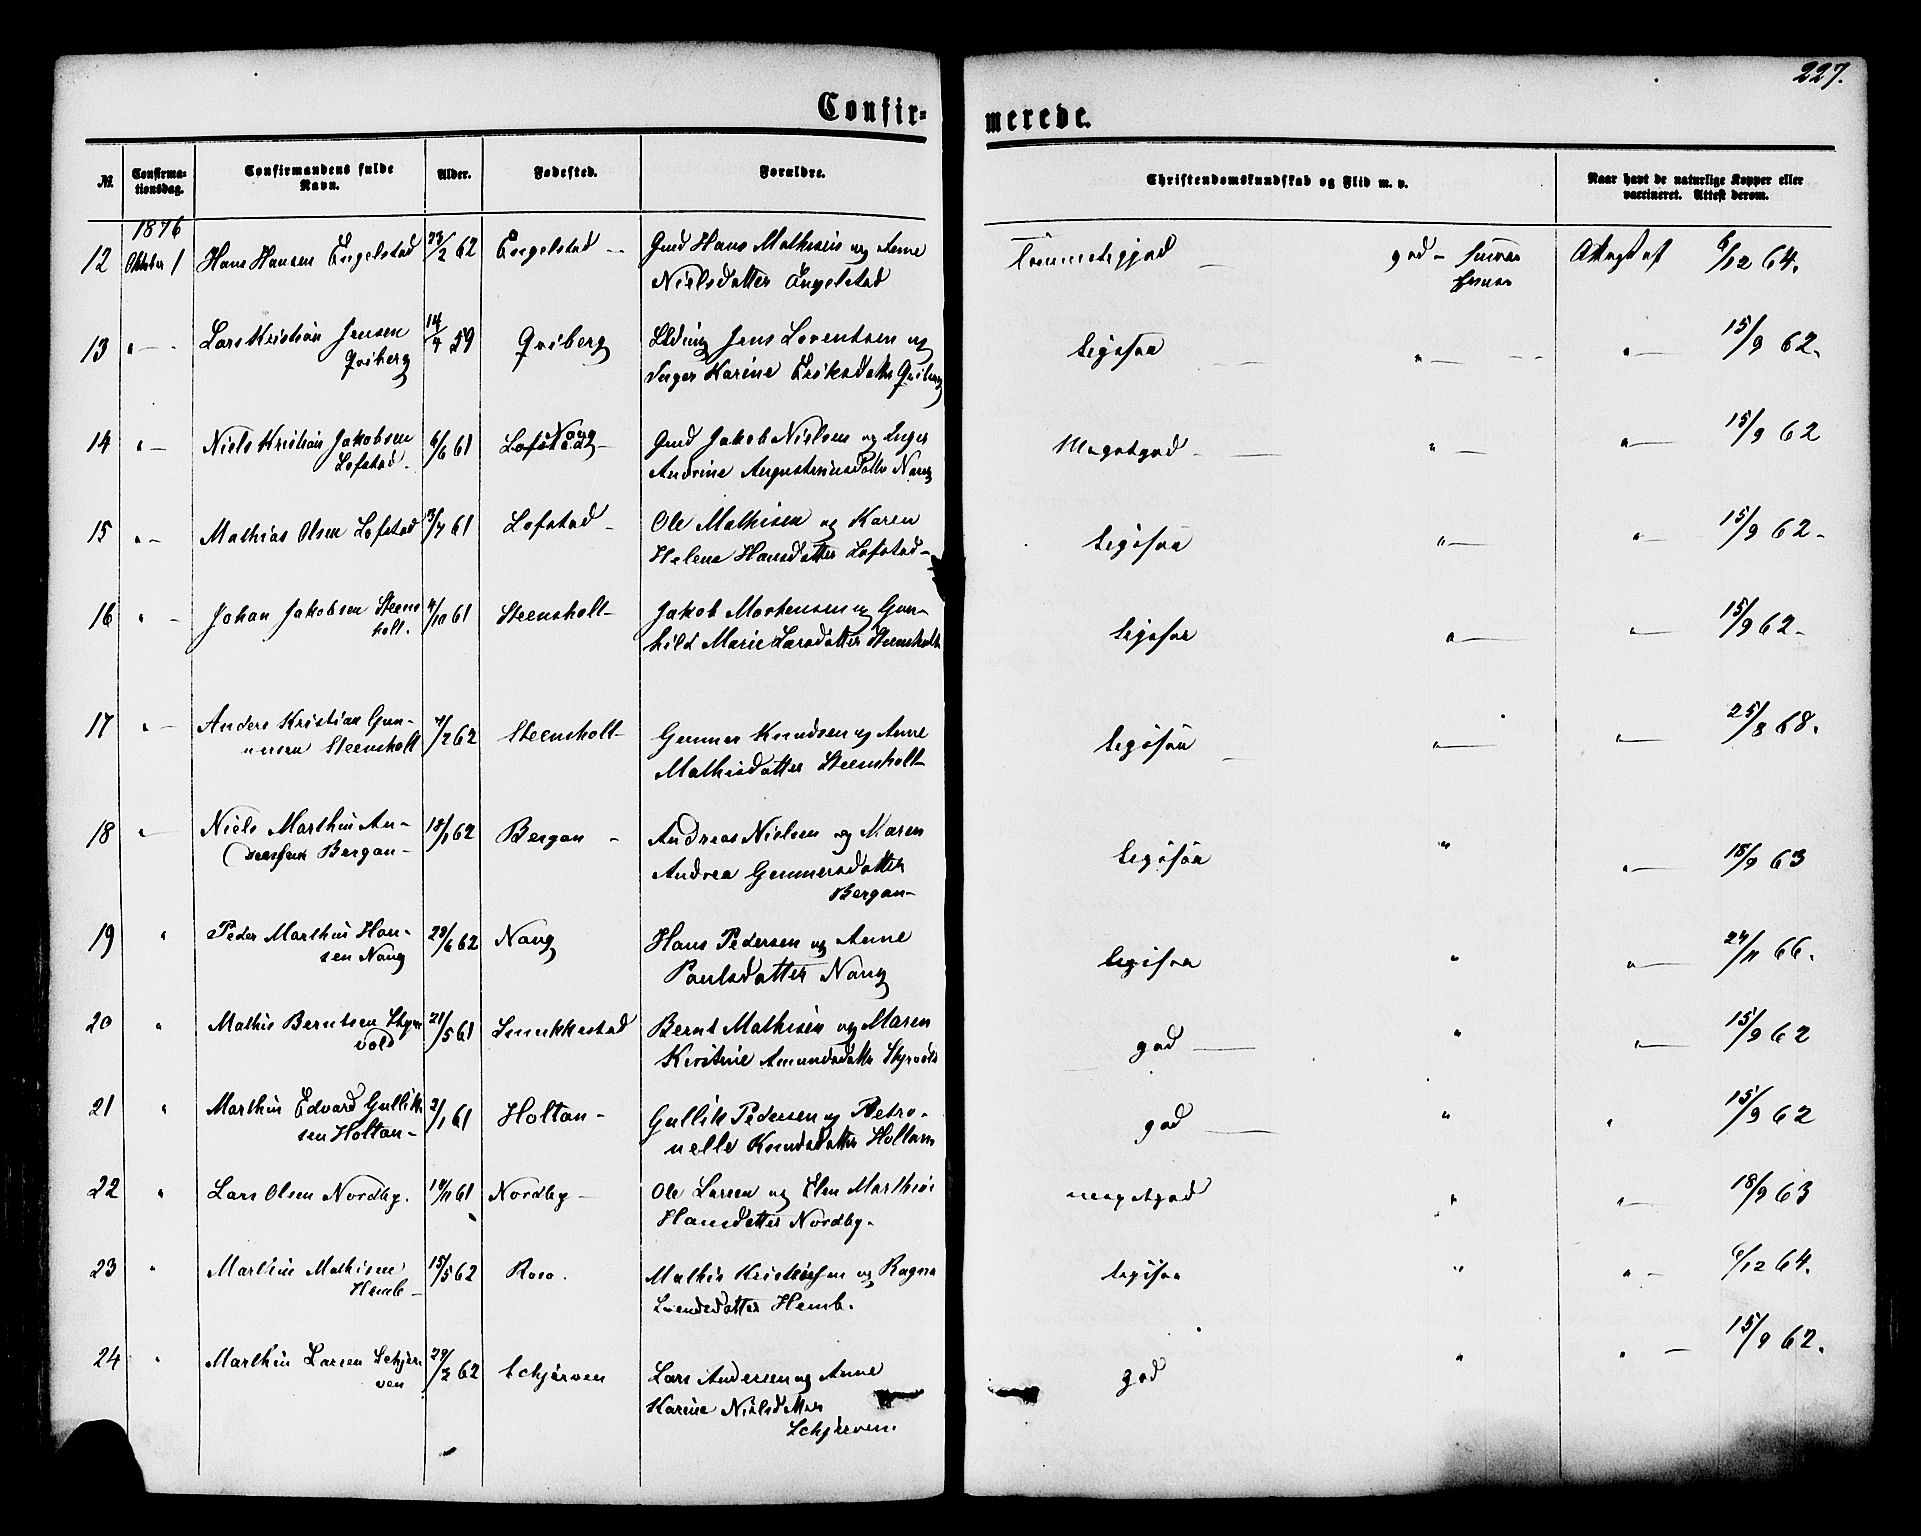 227.
Confir= merede.
№ Confirma-tionsdag. Confirmandens fulde Navn. Alder. Fødested. Forældre. Christendomskundskab og Flid m. v. Naar havt de naturlige Kopper eller vaccineret. Attest derom.
1876
12 Oktober 1 Hans Hansen Engelstad 23/2 62 Engelstad Gmd Hans Mathisen og Anne god Attest af 6/12 64.
Nielsdatter Engelstad
13 " Lars Kristian Jensen 14/4 59 Qviberg Jens Lorentsen og ligesaa " " 15/9 62.
Qviberg Inger Karine Eriksdatter Qviberg
14 " Niels Kristian Jakobsen 6/6 61 Lofstad Nang Gmd Jakob Nielsen og Inger Megetgod " " 15/9 62
Lofstad. Andrine Augustinusdatter Nang
15 " Mathias Olsen Lofstad 13/7 61 Lofstad Ole Mathisen og Karen ligesaa " " 15/9 62
Helene Hansdatter Lofstad
16 " Johan Jakobsen Steens 4/10 61 Steensholt Jakob Mortensen og Gun- ligesaa " " 15/9 62
holt. hild Marie Larsdatter Steensholt
17 " Anders Kristian Gun- 4/2 62 Steensholt Gunner Knudsen og Anne ligesaa " " 25/8 68.
nersen Steensholt Mathisdatter Steensholt
18 " Niels Marthin An- 18/1 62 Bergan Andreas Nielsen og Maren ligesaa " " 18/9 63
dreasen Bergan Andrea Gunnersdatter
Bergan
19 " Peder Marthin Han- 28/6 62 Nang Hans Pedersen og Anne ligesaa " " 24/11 66.
sen Nang Paulsdatter Nang
20 " Mathis Berntsen Styr 21/5 61 Smukkestad Bernt Mathisen og Maren god " " 15/9 62
vold Kirstine Amundsdatter Styrvold
21 " Marthin Edvard Gullik 2/1 61 Holtan Gullik Pedersen og Petro- god " " 15/9 62
sen Holtan nelle Knudsdatter Holtan
22 " Lars Olsen Nordby. 19/11 61 Nordby Ole Larsen og Elen Marthine megetgod " " 18/9 63
Hansdatter Nordby.
23 " Marthin Mathisen 15/5 62 Roso. Mathis Kristensen og Ragna ligesaa " " 6/12 64.
Hemb Hemb.
24 " Marthin Larsen Schjer 29/3 62 Schjerven Lars Andersen og Anne god " " 15/9 62.
ven Karine Nielsdatter
Schjerven.